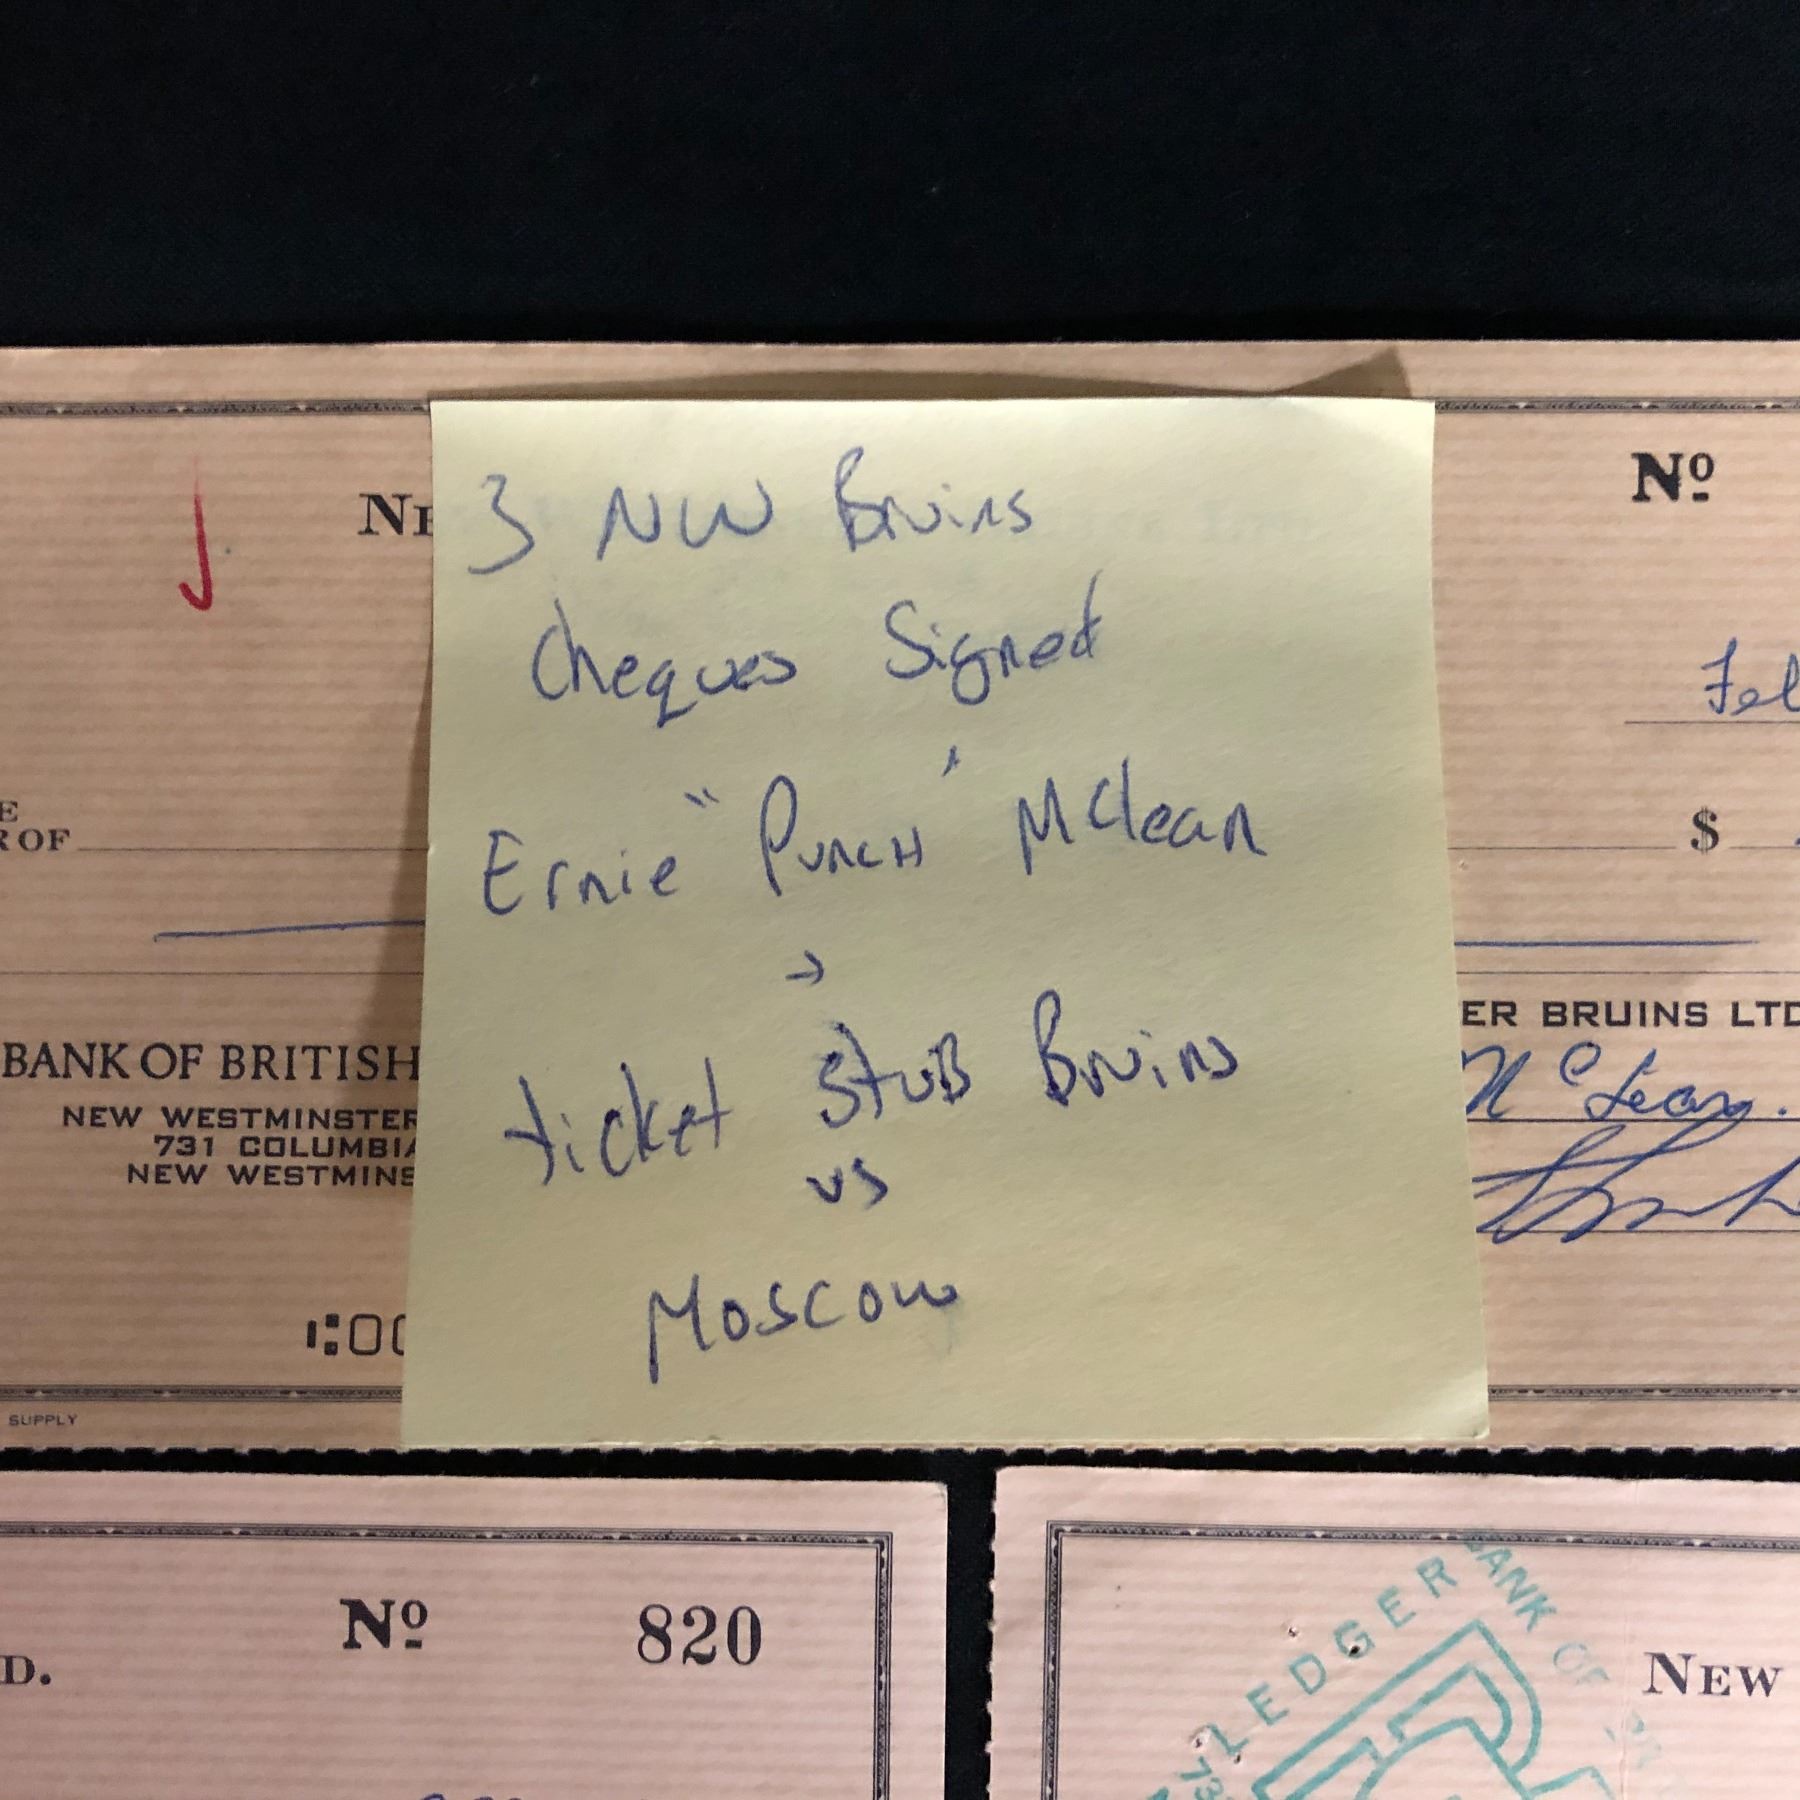 3 NW Bruins
Cheques Signed
Ernie "Punch" McLean
→
ticket Stub Bruins
vs
Moscow
Nº
$
ROF
ER BRUINS LTD
McLean.
BANK OF BRITISH
NEW WESTMINSTER
731 COLUMBIA
NEW WESTMINS
SUPPLY
D.
Nº 820
LEDGER
BANK OF
NEW